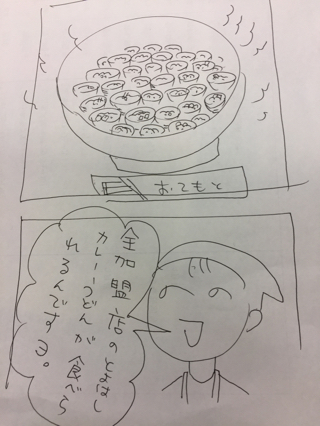 おてもと
全加盟店の
カレーうどんが食べら
れるんですョ。